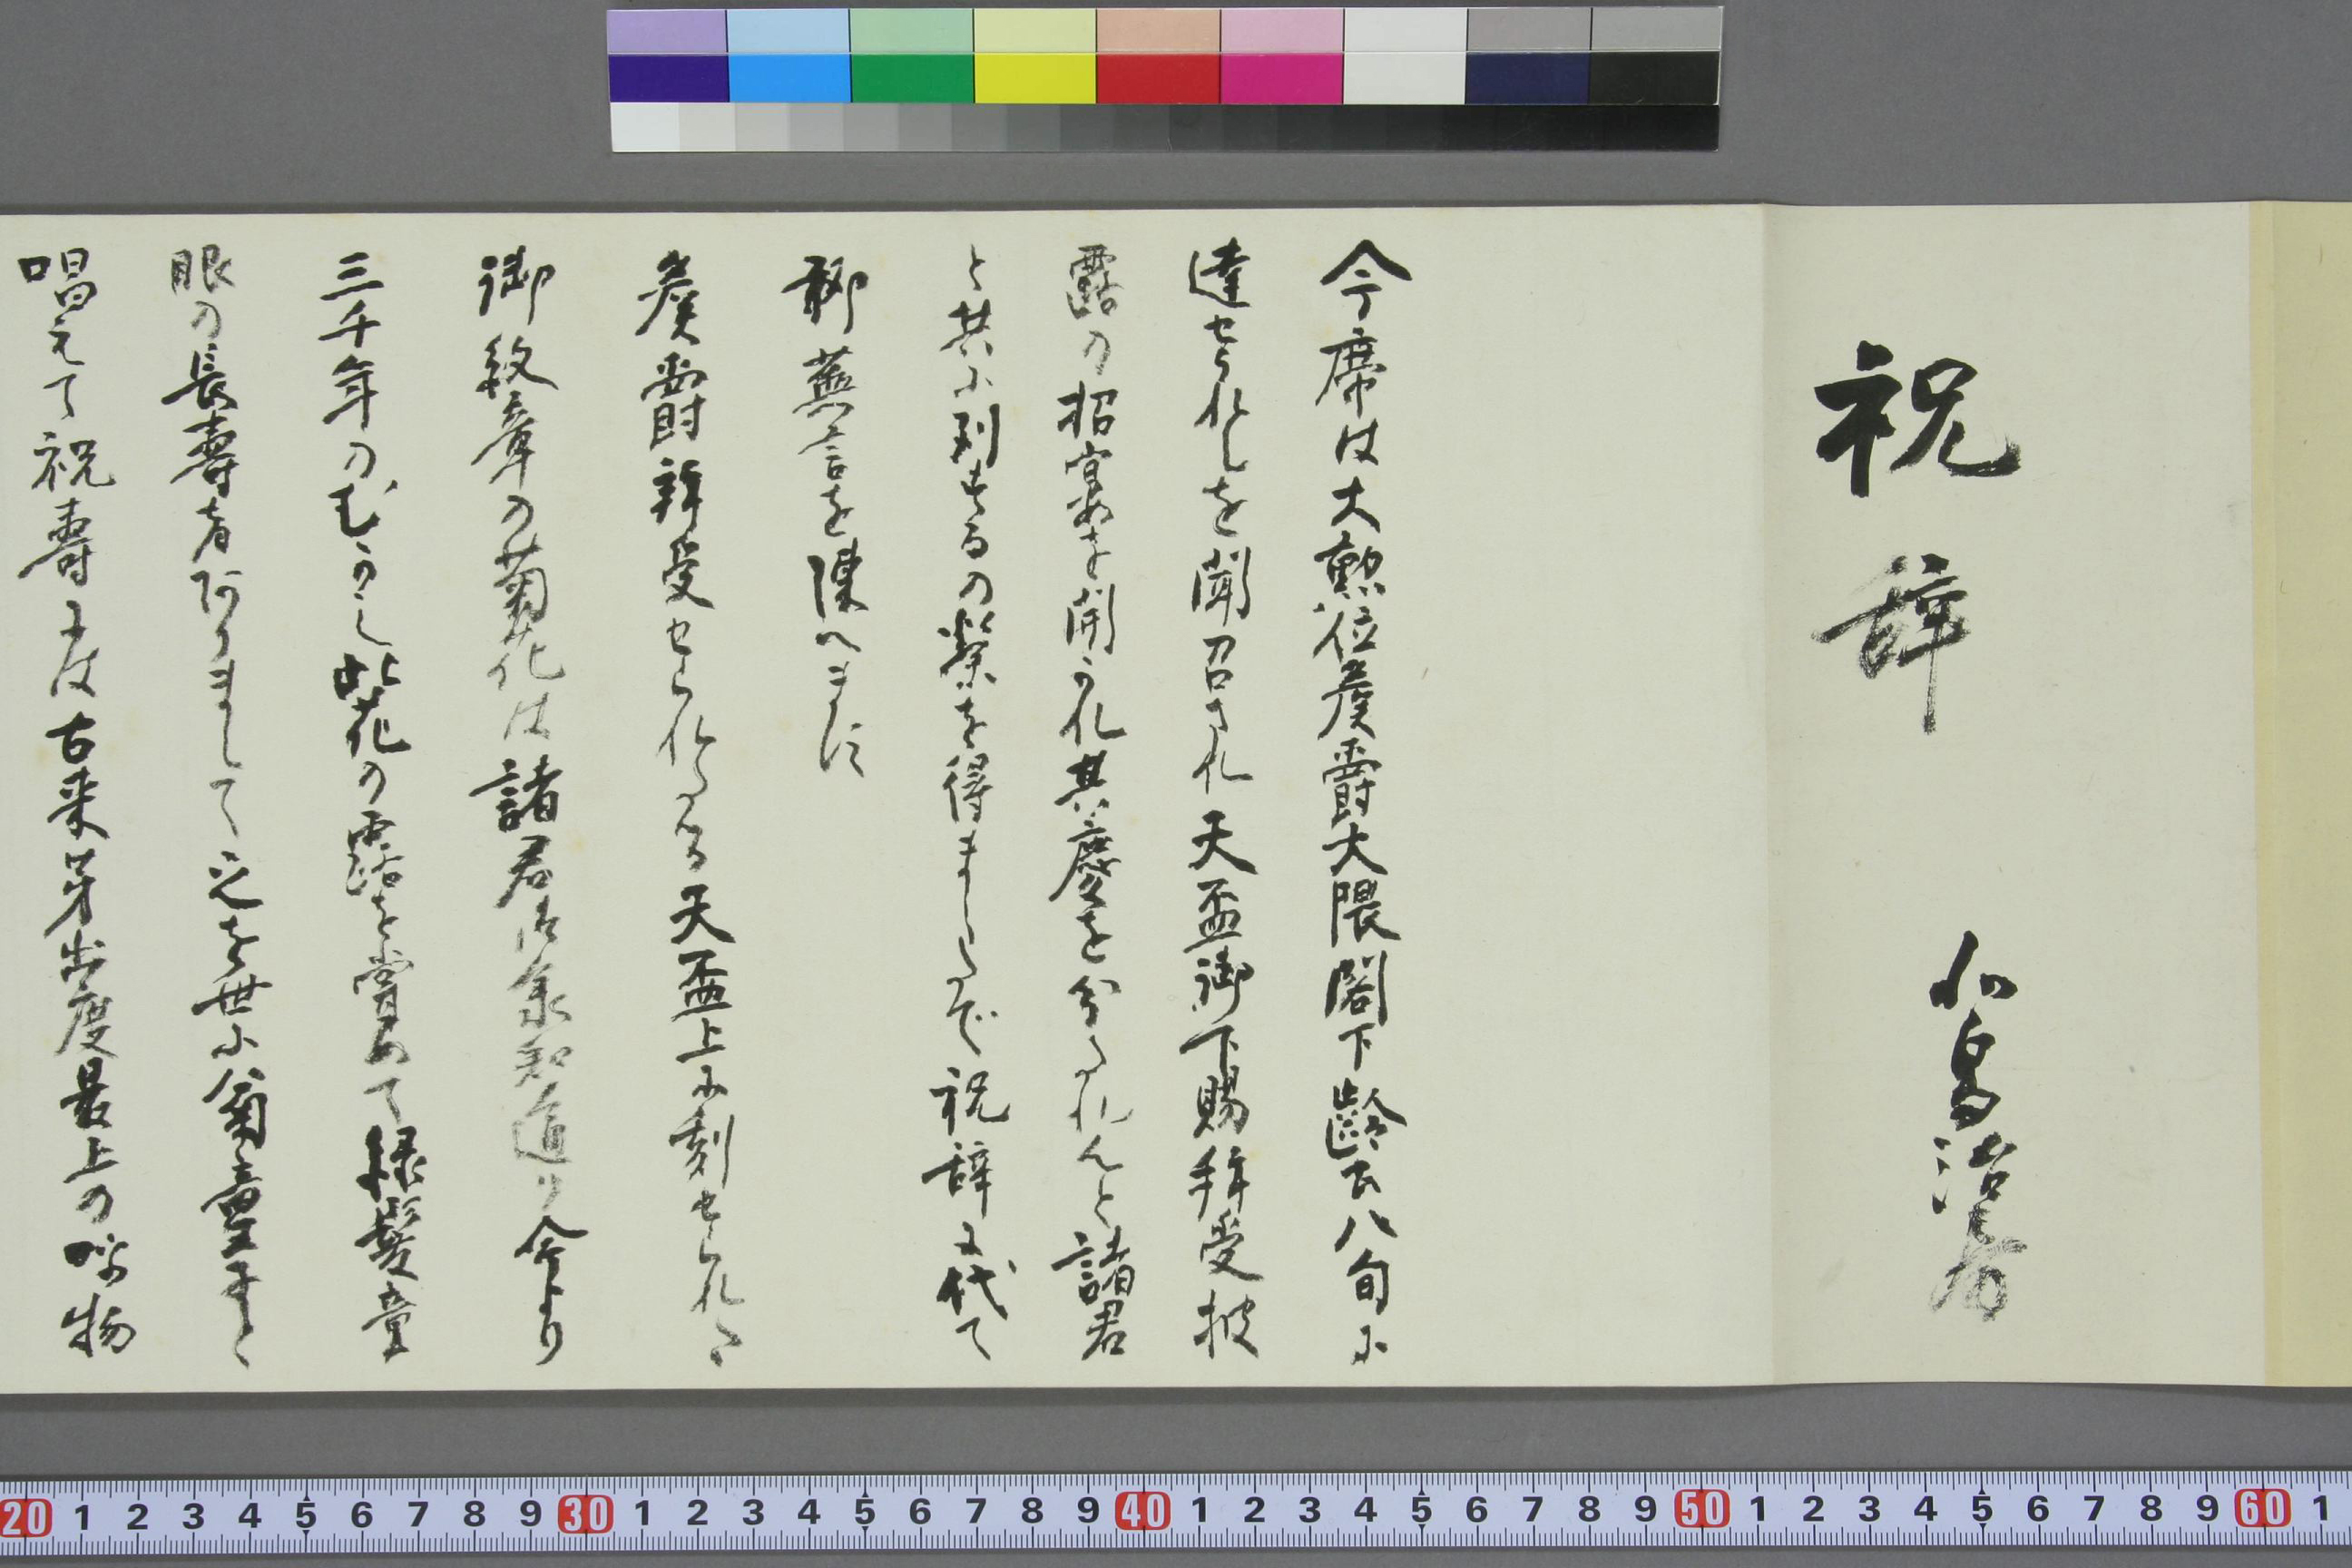 祝辞
仙鳥治房
今席は大勲位侯爵大隈閣下齢已八旬に
達せられしを聞召され天盃御下賜拝受披
露の招宴を開かれ其慶を分たれんと諸君
と共に列するの栄を得ましたので祝辞に代て
聊蕪言を陳へます
侯爵拝受せられたる天盃上に刻せられた
御紋章の菊花は諸君御承知通り今より
三千年のむかし此花の露を嘗めて緑髪童
眼の長寿者ありまして之を世に菊童子と
唱えて祝寿には古来芽出度最上の呼物
20 1 2 3 4 5 6 7 8 9 30 1 2 3 4 5 6 7 8 9 40 1 2 3 4 5 6 7 8 9 50 1 2 3 4 5 6 7 8 9 60 1